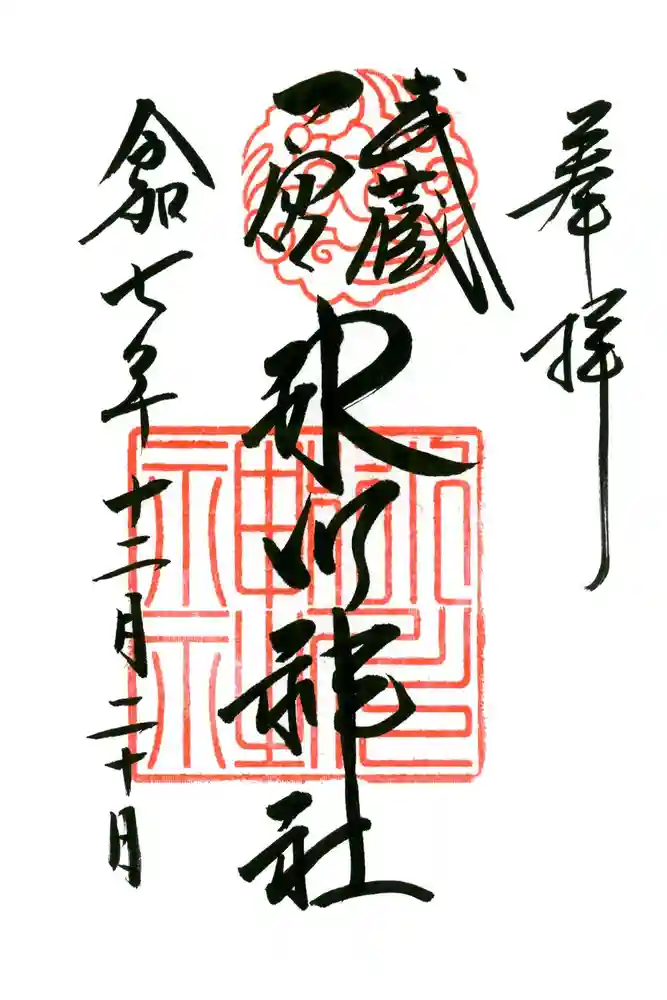 奉拝
武蔵
一宮
氷川神社
令和七年十二月二十日